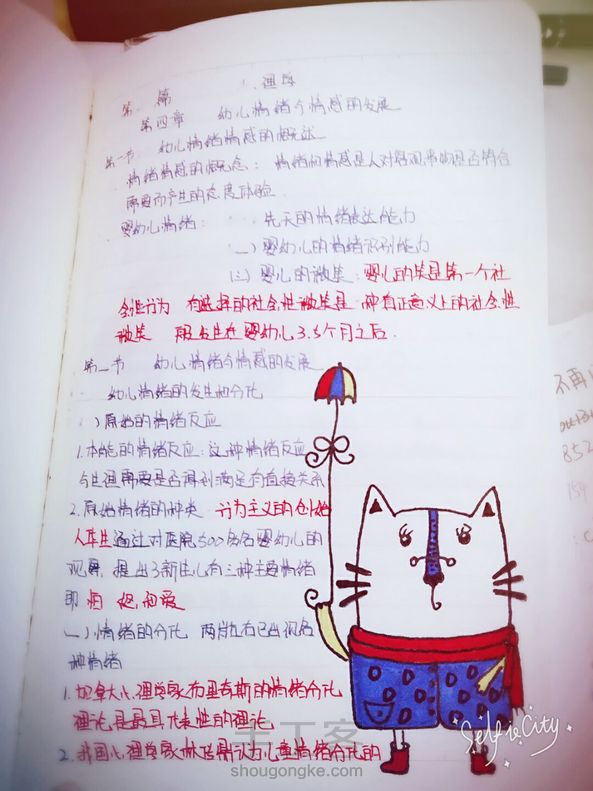 第 篇 心理学
第四章 幼儿情绪与情感的发展
第一节 幼儿情绪情感的概述
情绪情感的概念：情绪和情感是人对客观事物是否符合
需要而产生的态度体验
婴幼儿情绪： 先天的情绪表达能力
二)婴幼儿的情绪识别能力
(三)婴儿的微笑：婴儿的笑是第一个社
会性行为 有选择的社会性微笑是 种真正意义上的社会性
微笑 一般发生在婴幼儿3.5个月之后.
第二节 幼儿情绪与情感的发展
幼儿情绪的发生和分化
)原始的情绪反应
1.本能的情绪反应:这种情绪反应
与生理需要是否得到满足有直接关系
2.原始情绪的种类 行为主义的创始
人华生通过对医院500名婴幼儿的
观察,提出了新生儿有三种主要情绪
即怕 怒 和爱
二)情绪的分化 两岁左右已出现各
种情绪
1.加拿大心理学家布里奇斯的情绪分化
理论是最具代表性的理论
2.我国心理学家林传鼎认为儿童情绪分化的
不再
852
154
手工客
shougongke.com
SelfieCity